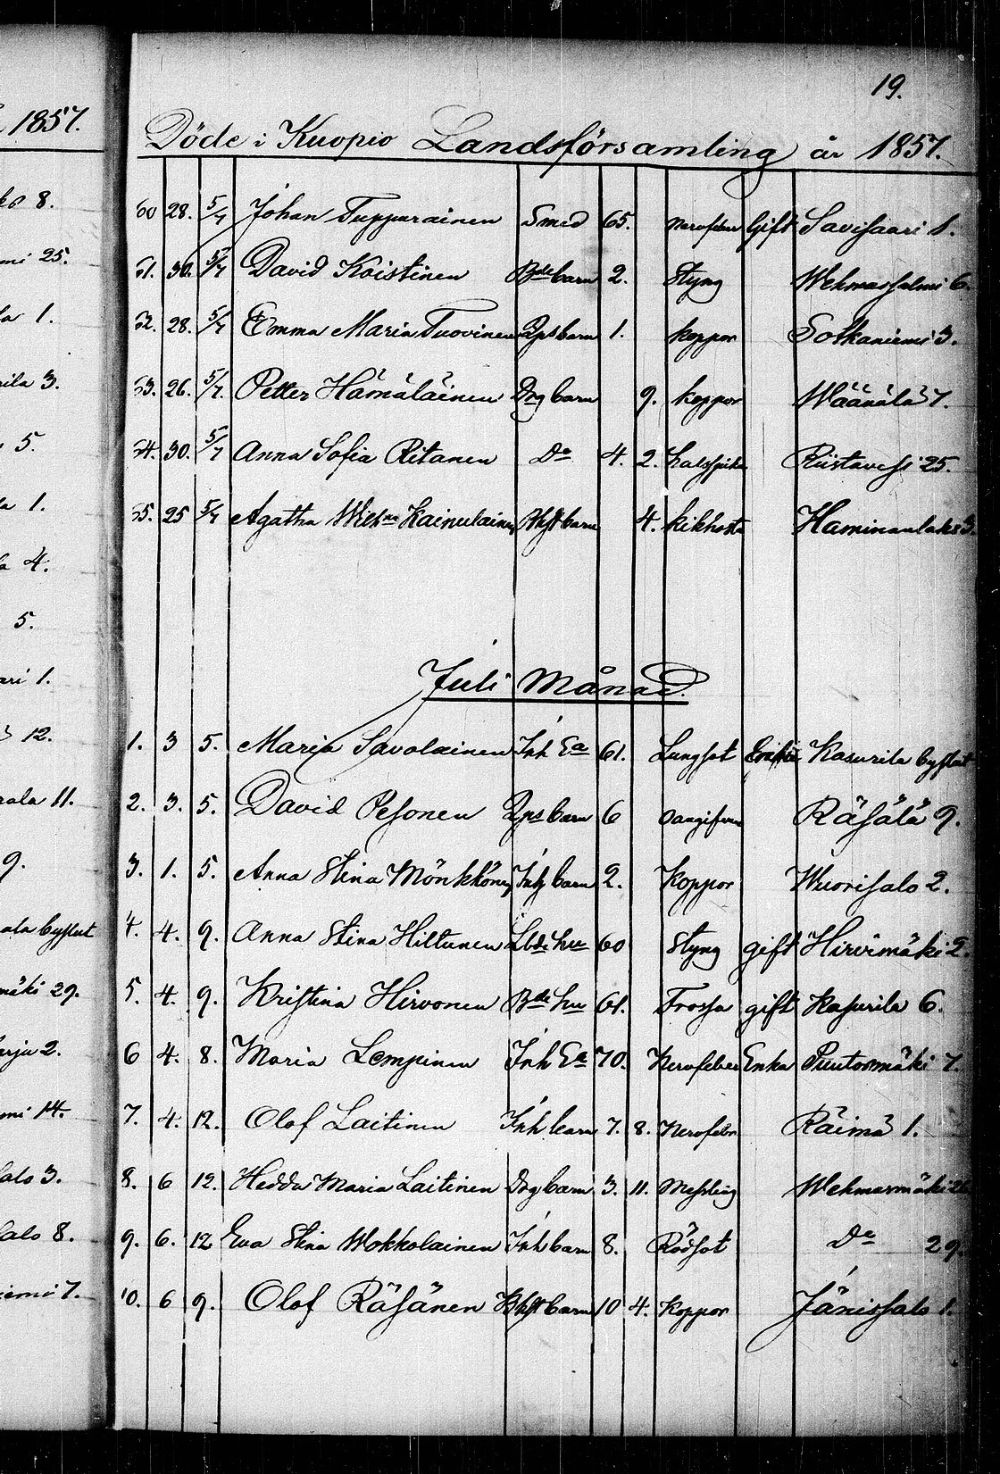 1857.
19.
Döde i Kuopio Landsförsamling år 1857.
60 28. 5/7 Johan Tuppurainen Smed 65. Nervfeber Gift Savisaari 1.
61. 30. 5/7 David Koistinen Bde barn 2. Styng Wehmassalmi 6.
62. 28. 5/7 Emma Maria Tuovinen Zps barn 1. koppor Sotkaniemi 3.
63. 26. 5/7 Petter Hämäläinen Drg barn 9. koppor Wäänälä 7.
64. 30. 5/7 Anna Sofia Ritanen Do 4. 2. halssjuka Riistavesi 25.
65. 25 5/7 Agatha Wilhna Kainulainen barn 4. kikhosta Haminanlaks 3.
Juli Månad.
1. 3 5. Maria Savolainen Inh Ea 61. Lungsot Enka Kasurila byslut
2. 3. 5. David Pesonen Zps barn 6 oangifven Räsälä 9.
3. 1. 5. Anna Stina Mönkkönen Inh barn 2. Koppor Wuorisalo 2.
4. 4. 9. Anna Stina Hiltunen Lbde hu 60 Styng gift Hirvimäki 2.
5. 4. 9. Kristina Hirvonen Bde hu 61. Frossa gift Kasurila 6.
6 4. 8. Maria Lempinen Inh Ea 70. Nervfeber Enka Puutosmäki 7.
7. 4. 12. Olof Laitinen Inh barn 7. 8. Nervfebr Räimä 1.
8. 6 12. Hedda Maria Laitinen Drg barn 3. 11. Messling Wehmasmäki
9. 6. 12 Eva Stina Wokkolainen Inh barn 8. Rödsot Do 29.
10. 6 9. Olof Räsänen barn 10 4. Koppor Jänissalo 1.